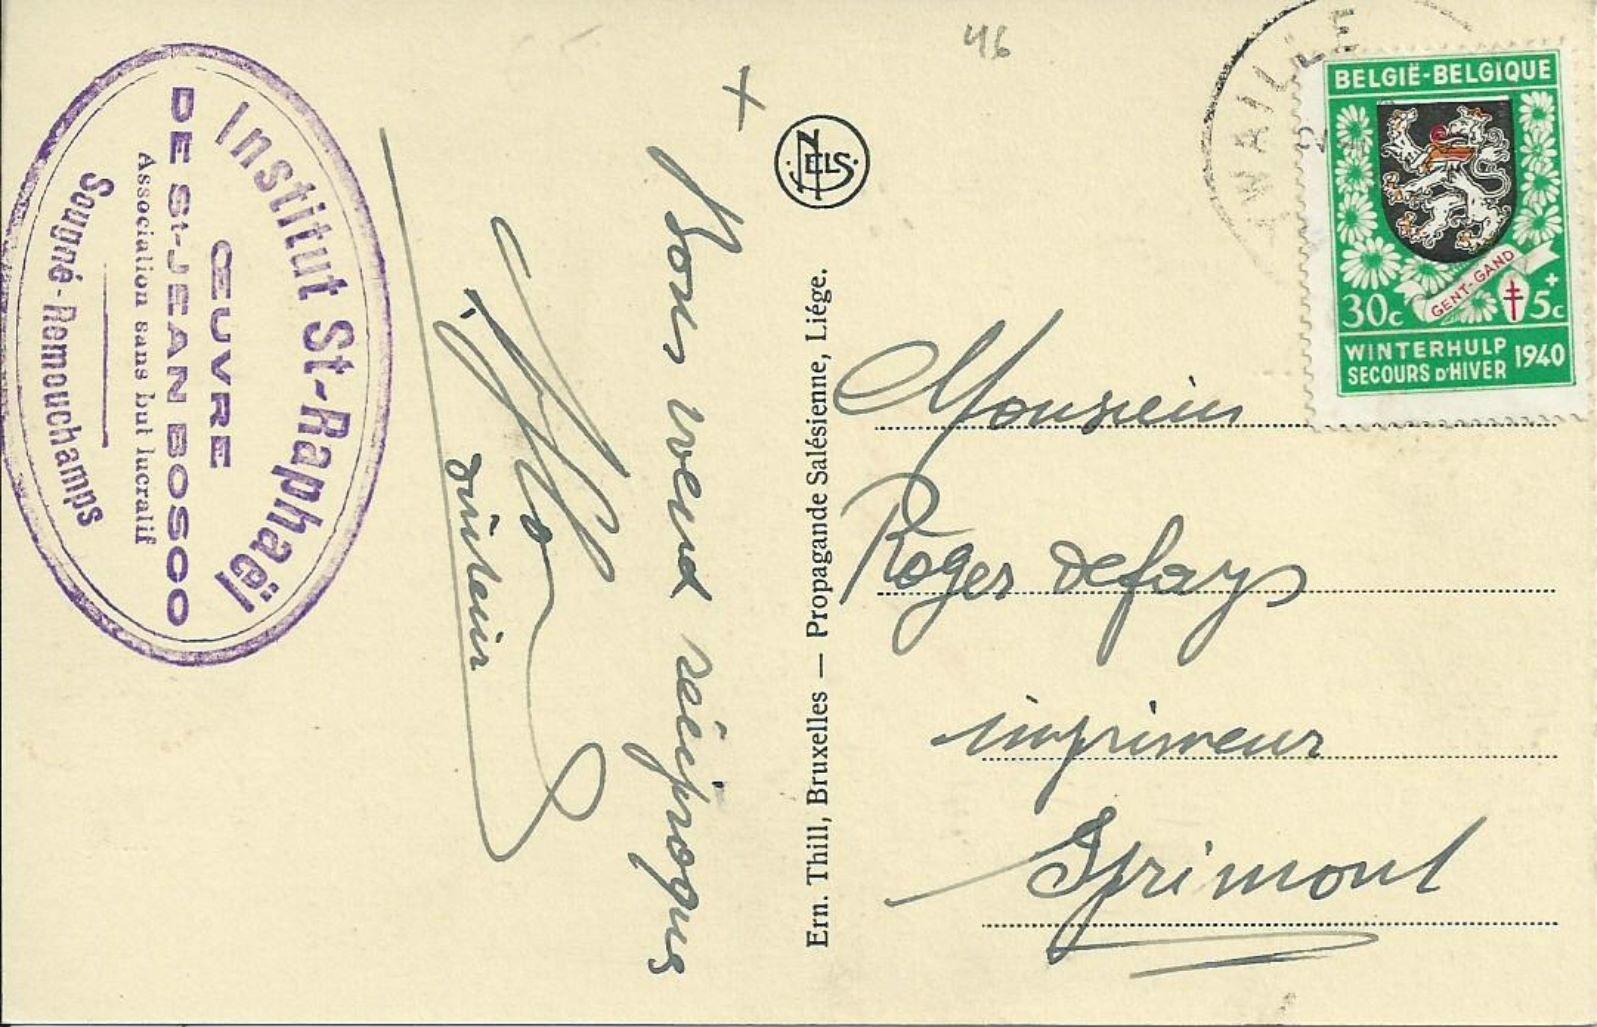 46
Institut St-Raphaël
ŒUVRE
DE St-JEAN BOSCO
Association sans but lucratif
Sougné-Remouchamps
Bons voeux réciproques
directeur
NELS
Ern. Thill, Bruxelles — Propagande Salésienne, Liége.
AYWAILLE
BELGIË-BELGIQUE
GENT-GAND
30c + 5c
WINTERHULP
SECOURS D'HIVER 1940
Monsieur
Roger Defays
imprimeur
Sprimont